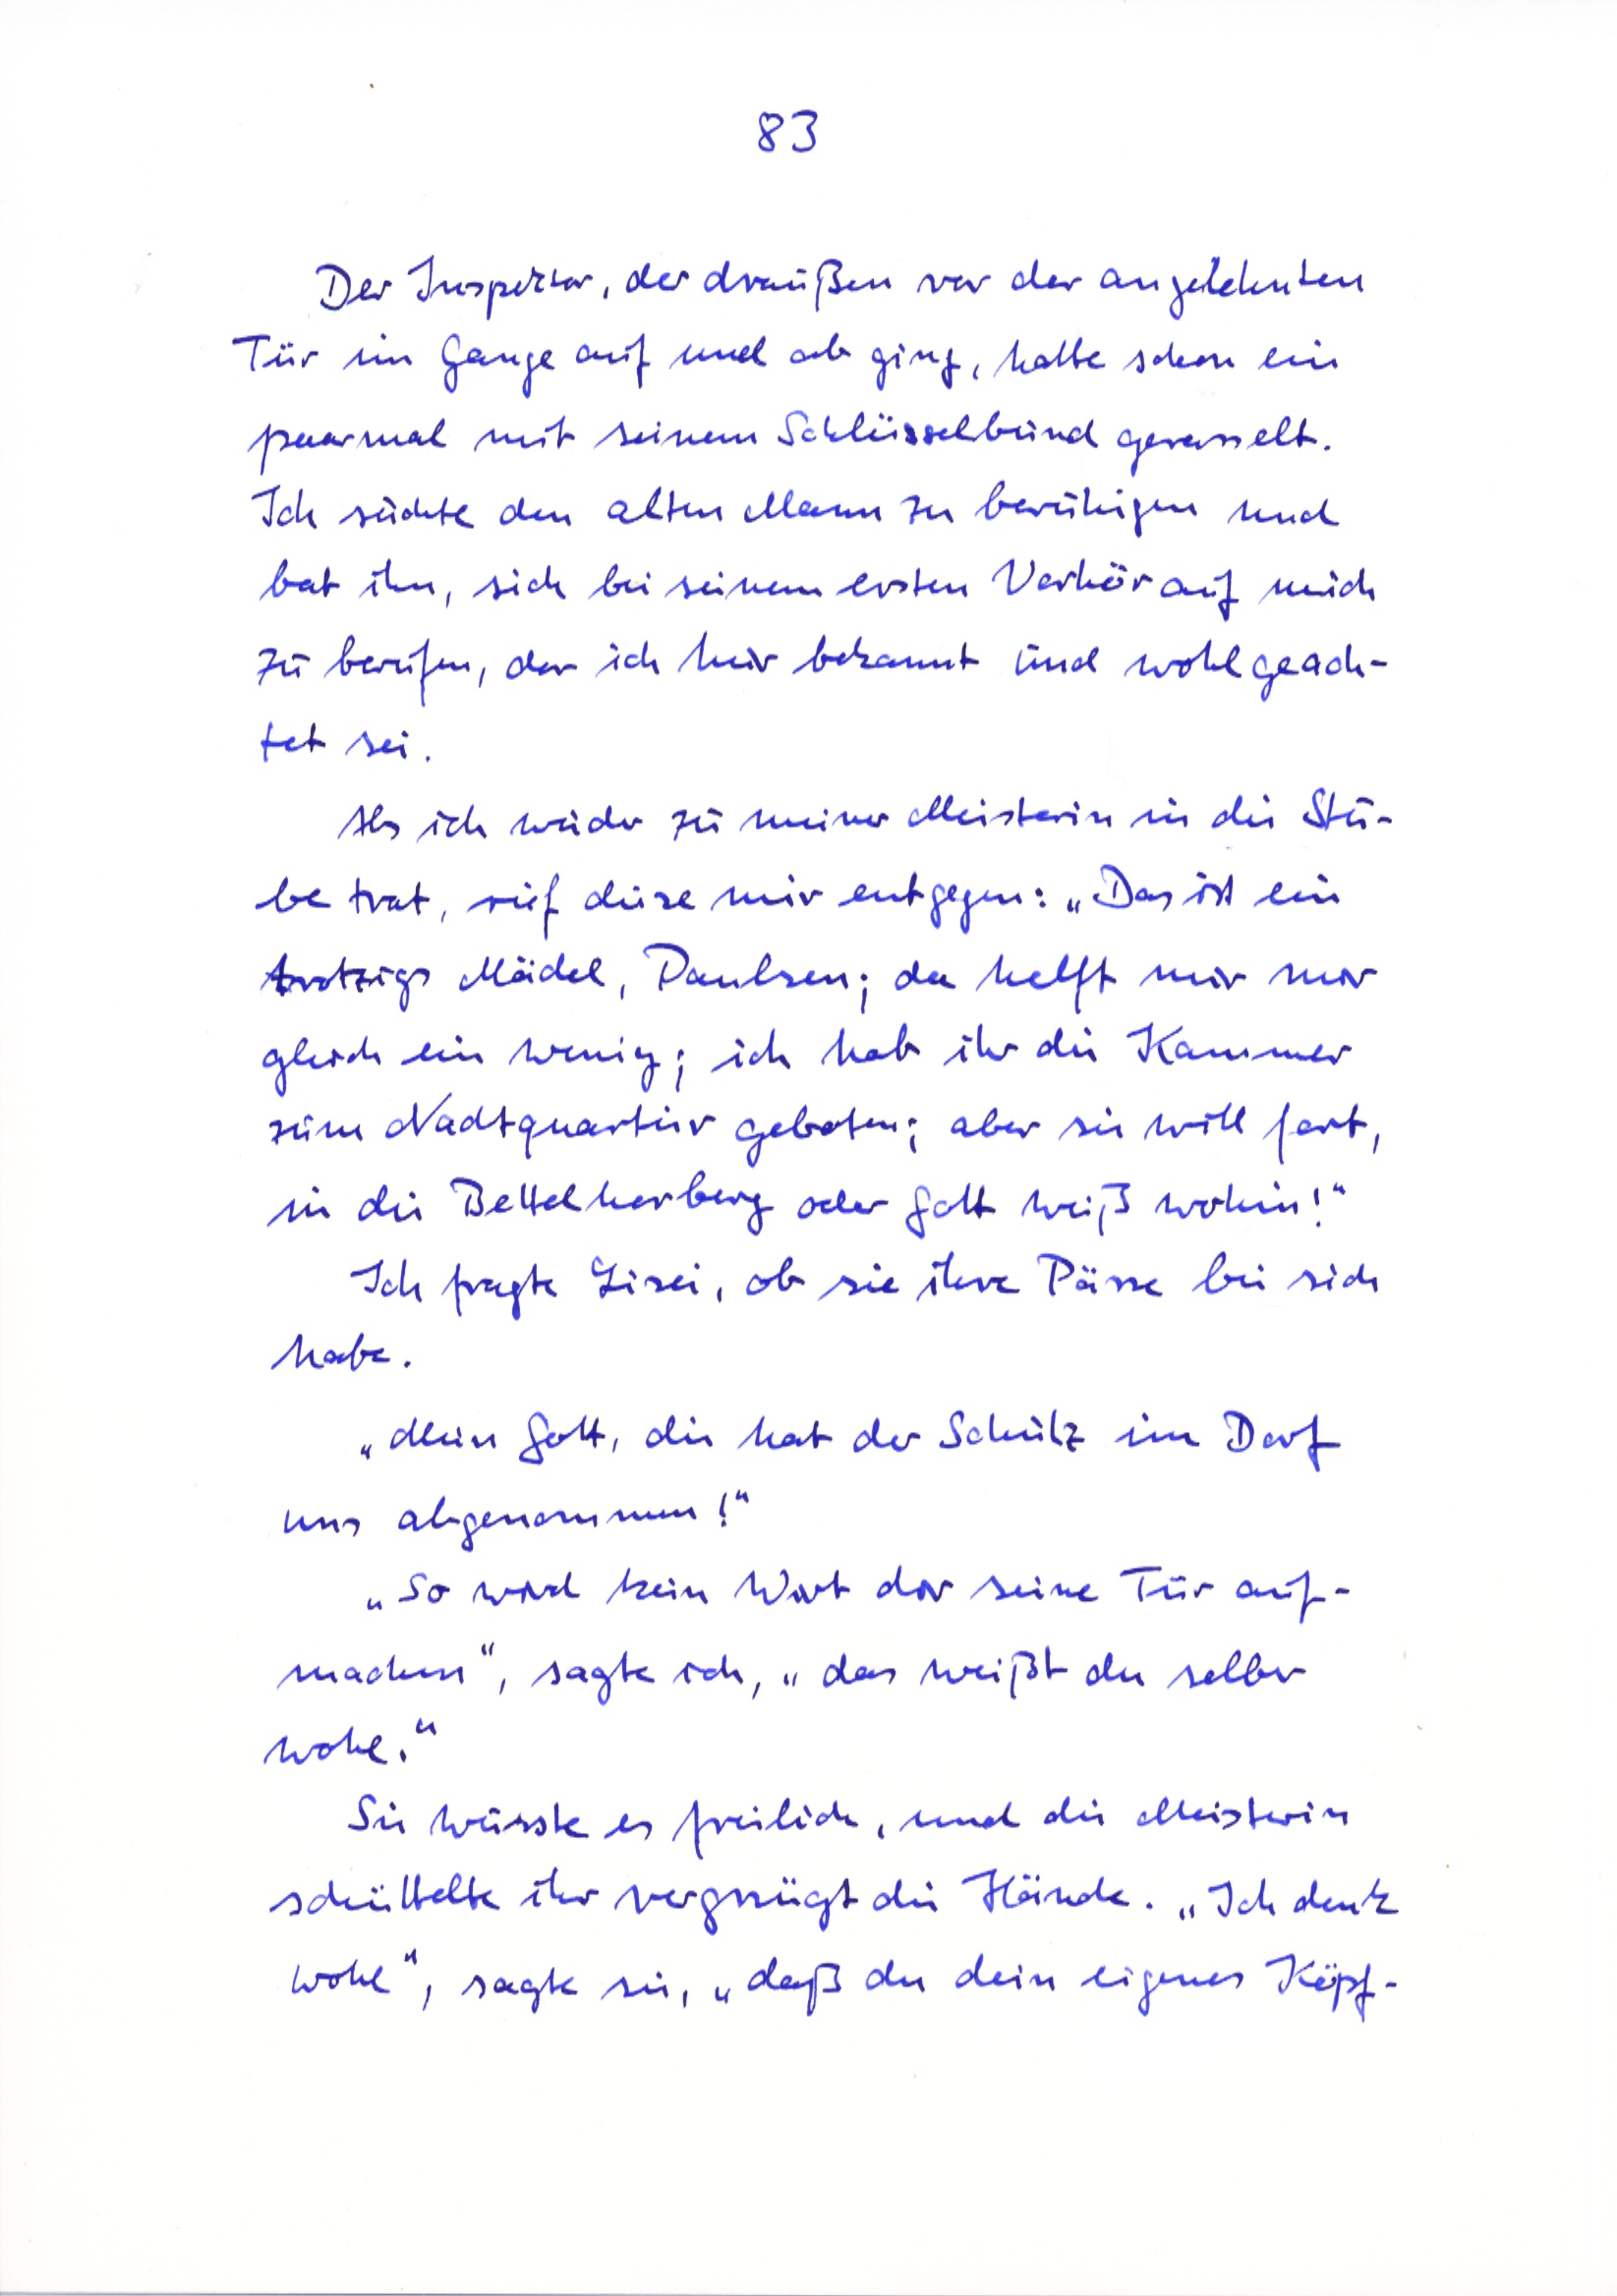 83
Der Inspektor, der draußen vor der angelehnten
Tür im Gange auf und ab ging, hatte schon ein
paarmal mit seinem Schlüsselbund gerasselt.
Ich suchte den alten Mann zu beruhigen und
bat ihn, sich bei seinem ersten Verhör auf mich
zu berufen, der ich hier bekannt und wohl geach-
tet sei.
Als ich wieder zu meiner Meisterin in die Stu-
be trat, rief diese mir entgegen: „Das ist ein
trotzigs Mädel, Paulsen; da helft mir nur
gleich ein wenig; ich hab ihr die Kammer
zum Nachtquartier geboten; aber sie will fort,
in die Bettelherberg oder Gott weiß wohin!“
Ich fragte Lisei, ob sie ihre Pässe bei sich
habe.
„Mein Gott, die hat der Schulz im Dorf
uns abgenommen!“
„So wird kein Wirt dir seine Tür auf-
machen“, sagte ich, „das weißt du selber
wohl.“
Sie wusste es freilich, und die Meisterin
schüttelte ihr vergnügt die Hände. „Ich denk
wohl“, sagte sie, „daß du dein eigenes Köpf-